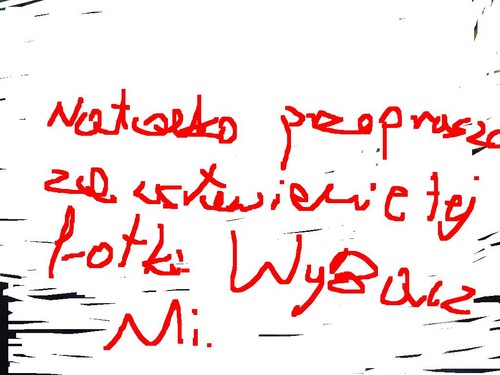 Natalko przeprasza
za wstawienie tej
fotki Wybacz
Mi.